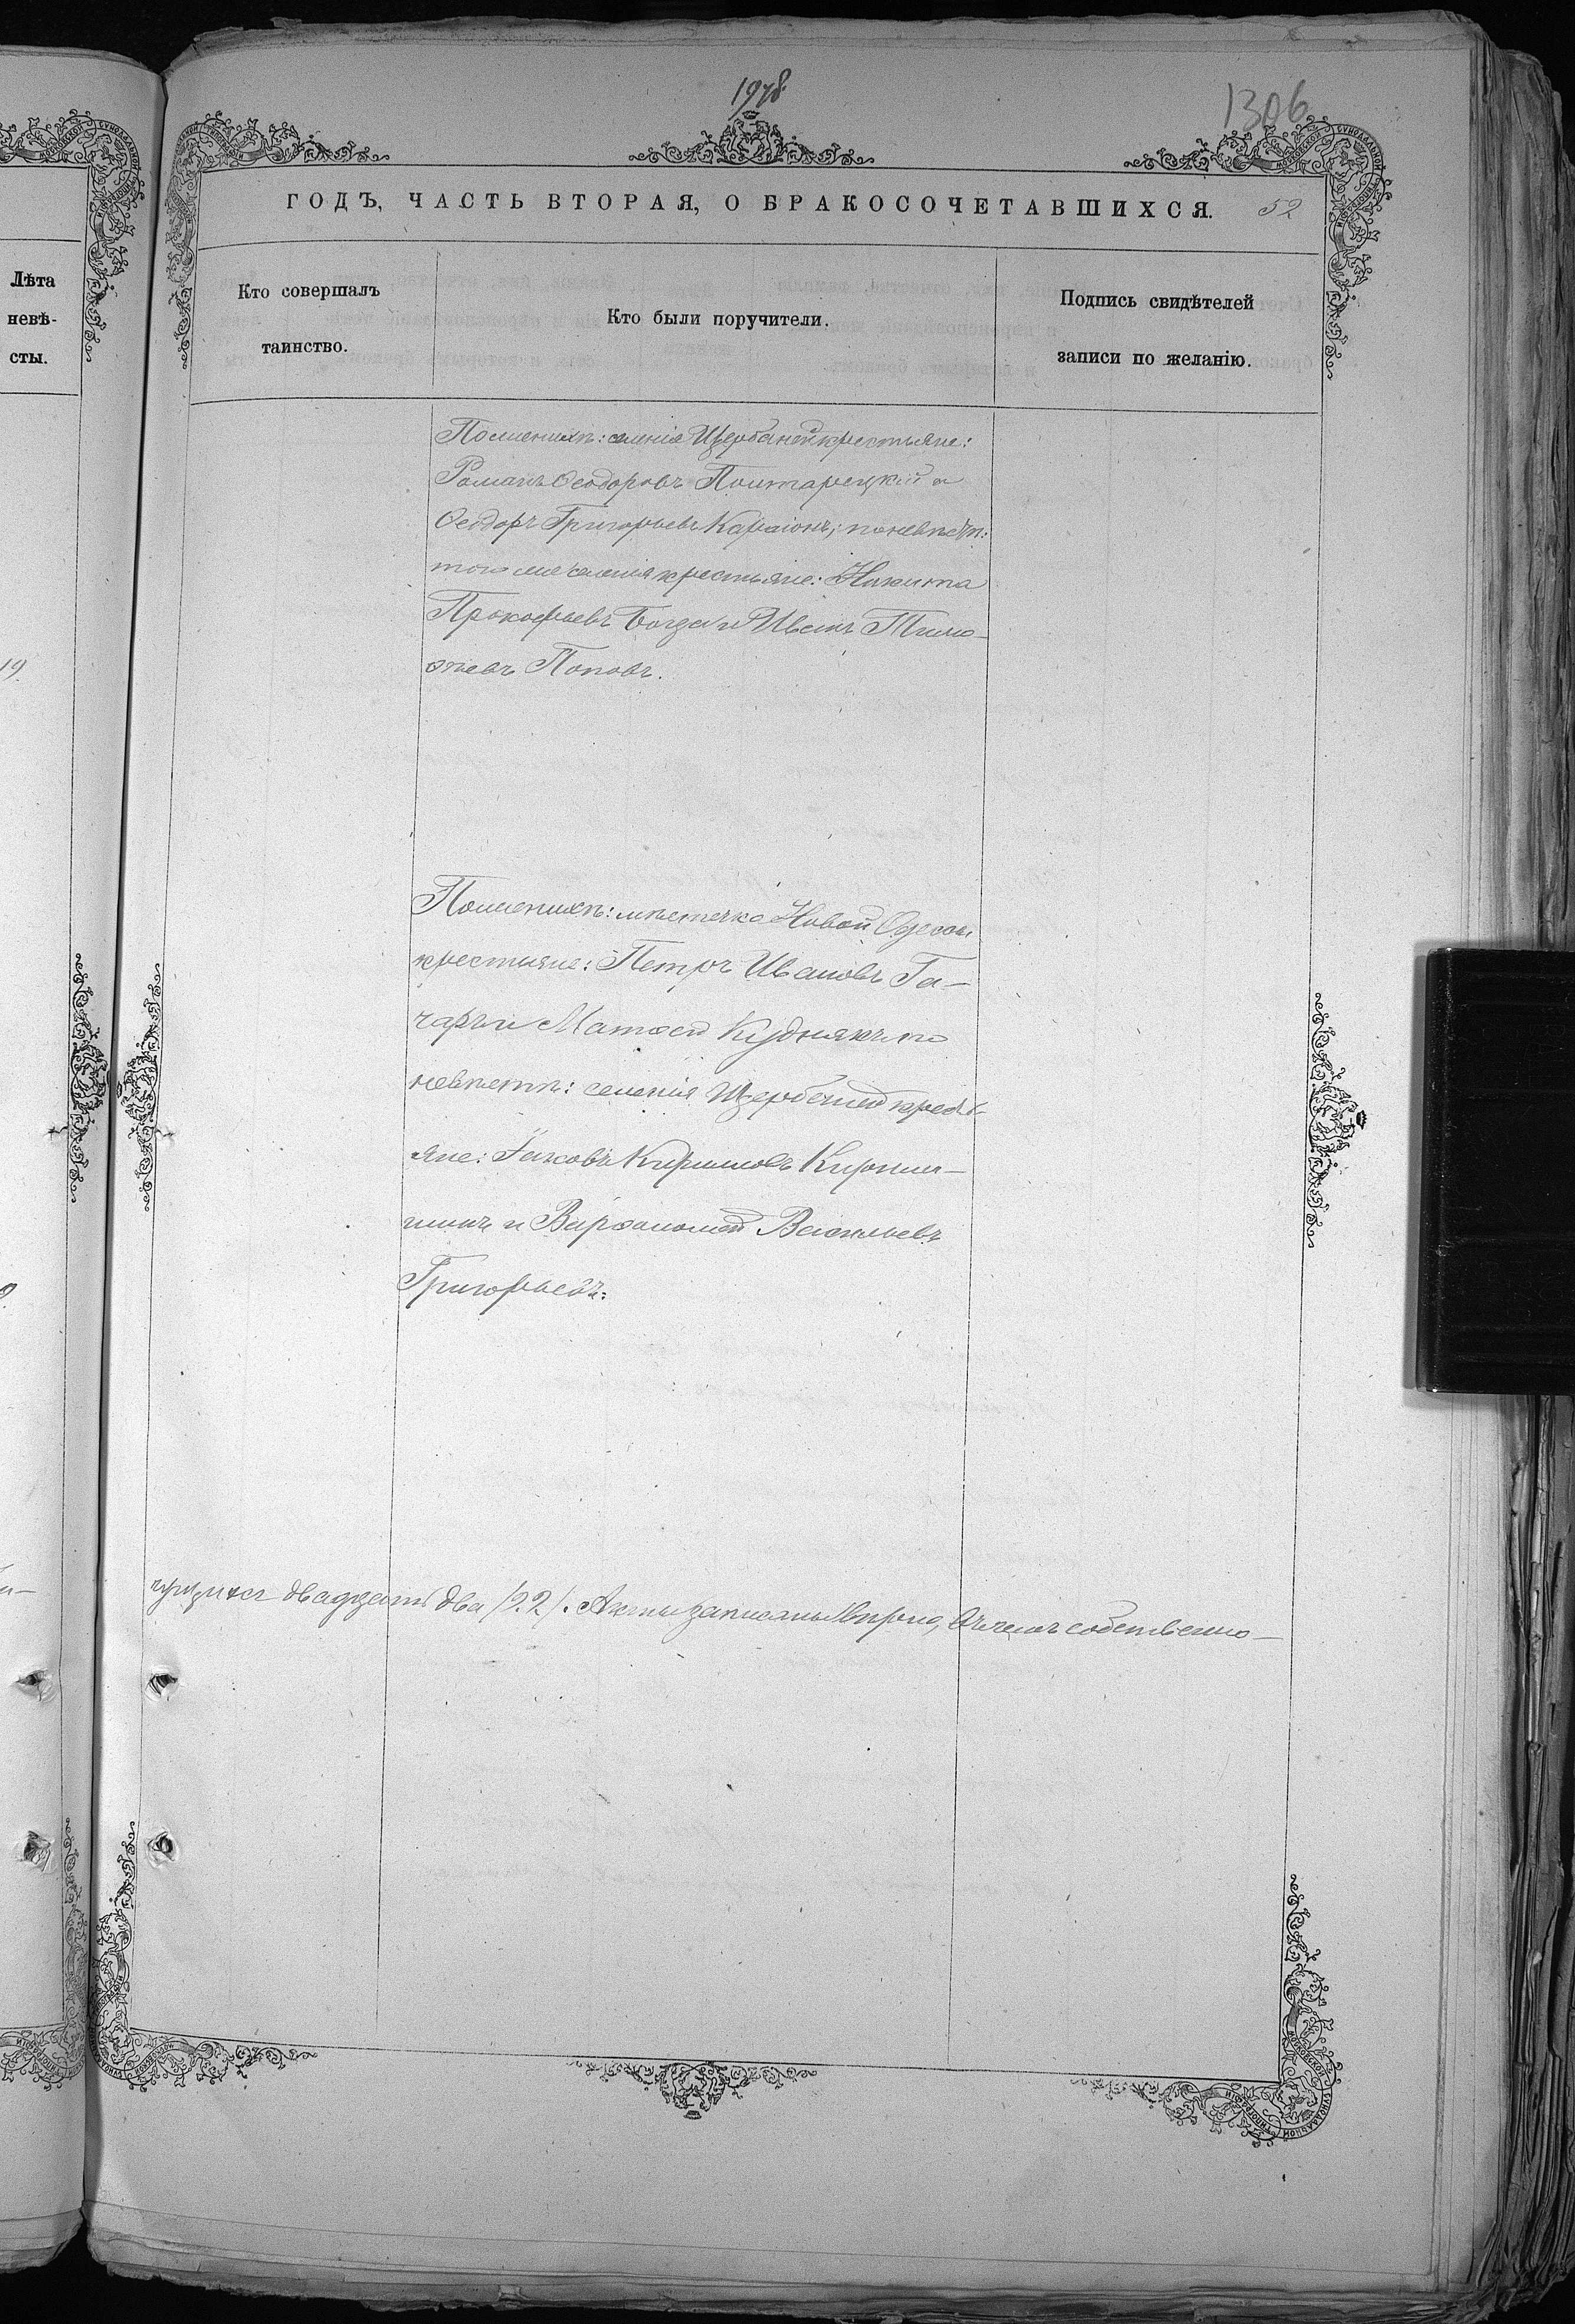 1978.
1306
ГОДЪ, ЧАСТЬ ВТОРАЯ, О БРАКОСОЧЕТАВШИХСЯ.
52
Лѣта
невѣ-
сты.
Кто совершалъ
таинство.
Кто были поручители.
Подпись свидѣтелей
записи по желанію.
По женихѣ: селенія Щербаней крестьяне:
Романъ Ѳеодоровъ Поитарецкій и
Ѳеодоръ Григорьевъ Караіонъ; по невѣстѣ:
того же селенія крестьяне: Никита
Прокофьевъ Богза и Иванъ Тимо-
ѳеевъ Поповъ.
19.
По женихѣ: мѣстечка Новой Одессы
крестьяне: Петръ Ивановъ Га-
чаръ и Матѳей Кудиякъ; по
невѣстѣ: селенія Щербаней крест-
яне: Іаковъ Кириловъ Кирили-
шинъ и Варѳоломей Васильевъ
Григорьевъ.
двадцать два (22). Акты записаны вѣрно, въ чемъ собственно-